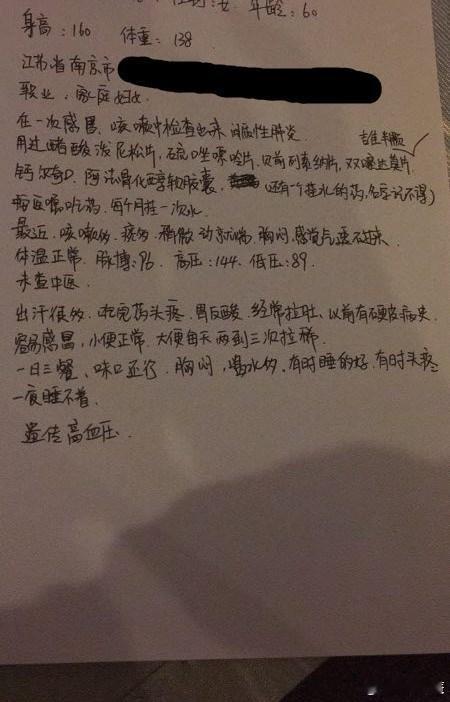 性别:女 年龄:60
身高:160 体重:138
江苏省南京市
职业:家庭妇女
在一次感冒、咳嗽中检查出来间质性肺炎
用过醋酸泼尼松片,硫唑嘌呤片,贝前列素纳片,双嘧达莫片
钙尔奇D,阿法骨化醇软胶囊,(还有一个挂水的药,名字记不得)
遵医嘱吃药,每个月挂一次水
最近,咳嗽多,痰多,稍微动就喘,胸闷,感觉气透不过来
体温正常,脉博:96,高压:144,低压:89.
未查中医
出汗很多,吃完药头疼,胃反酸,经常拉肚,以前有硬皮病史
容易感冒,小便正常,大便每天两到三次拉稀
一日三餐、味口还行,胸闷,喝水多,有时睡的好,有时头疼
一夜睡不着.
遗传高血压.